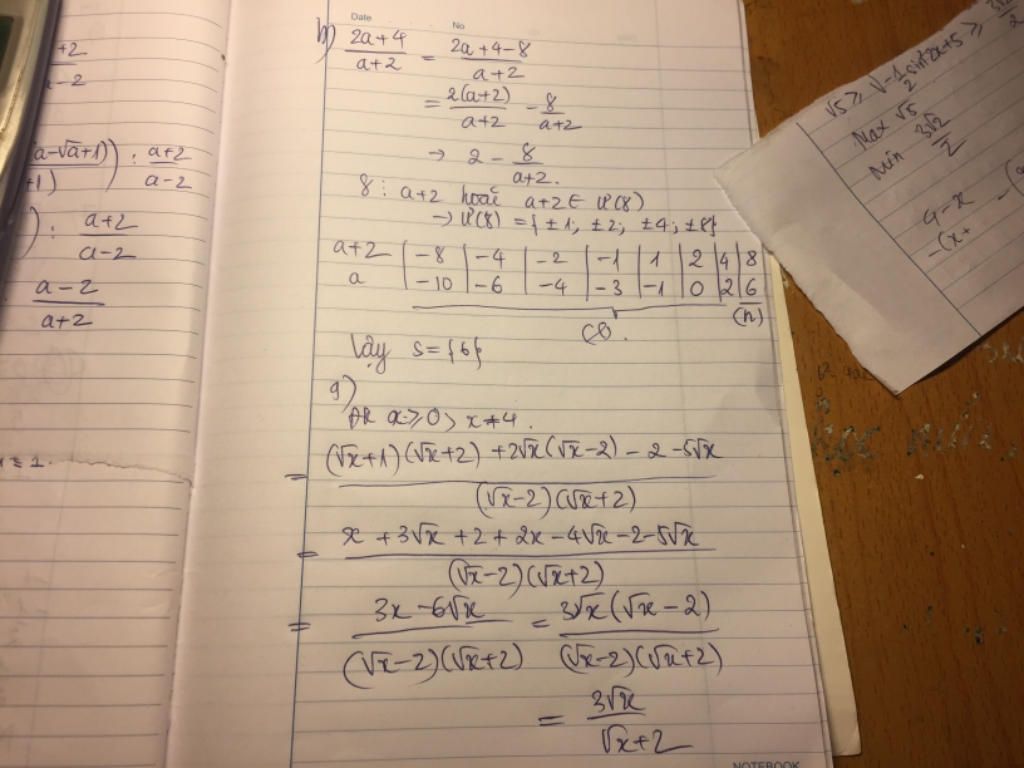 +2
a-2
(a-√a+1)) : a+2 / a-2
+1)
) : a+2 / a-2
a-2 / a+2
Date No
b) 2a+4 / a+2 = 2a+4-8 / a+2
= 2(a+2) / a+2 - 8 / a+2
→ 2 - 8 / a+2.
8 ⋮ a+2 hoặc a+2 ∈ Ư(8)
→ Ư(8) = {±1; ±2; ±4; ±8}
a+2 | -8 | -4 | -2 | -1 | 1 | 2 | 4 | 8
a | -10 | -6 | -4 | -3 | -1 | 0 | 2 | 6
(n)
Vậy S={6}
g)
ĐK x ≥ 0 > x ≠ 4.
= (√x+1)(√x+2) + 2√x(√x-2) - 2 - 5√x / (√x-2)(√x+2)
= x + 3√x + 2 + 2x - 4√x - 2 - 5√x / (√x-2)(√x+2)
= 3x - 6√x / (√x-2)(√x+2) = 3√x(√x-2) / (√x-2)(√x+2)
= 3√x / √x+2
NOTEBOOK
Max √5
Min 3√2 / 2
4-x
-(x+